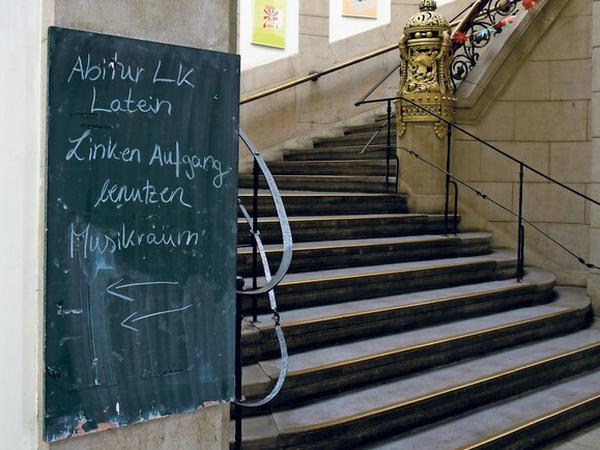 Abitur LK
Latein
Linken Aufgang
benutzen
Musikraum